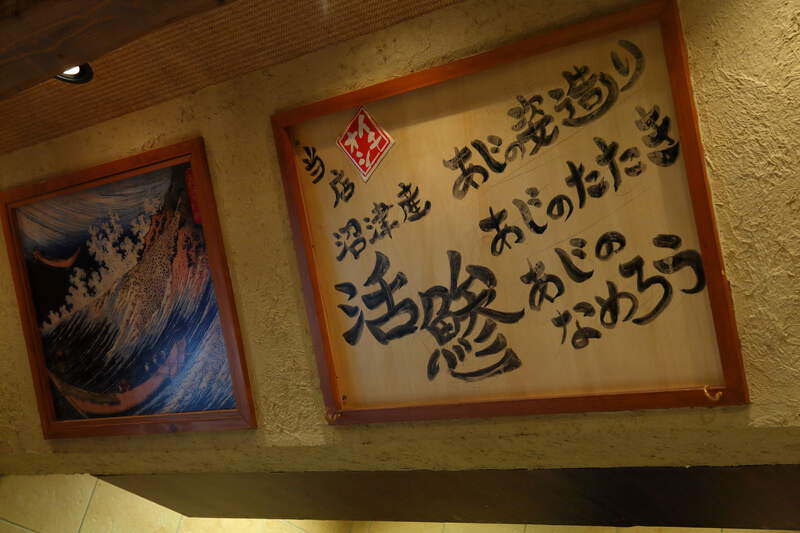 当店
オシ
沼津産
活鯵
あじの姿造り
あじのたたき
あじの
なめろう